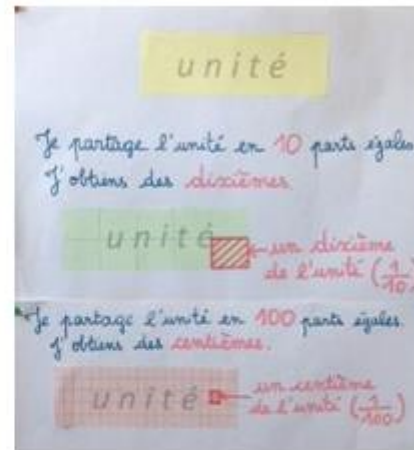 unité
Je partage l'unité en 10 parts égales
J'obtiens des dixièmes.
unité
un dixième
de l'unité (1/10)
Je partage l'unité en 100 parts égales.
J'obtiens des centièmes.
unité
un centième
de l'unité (1/100)